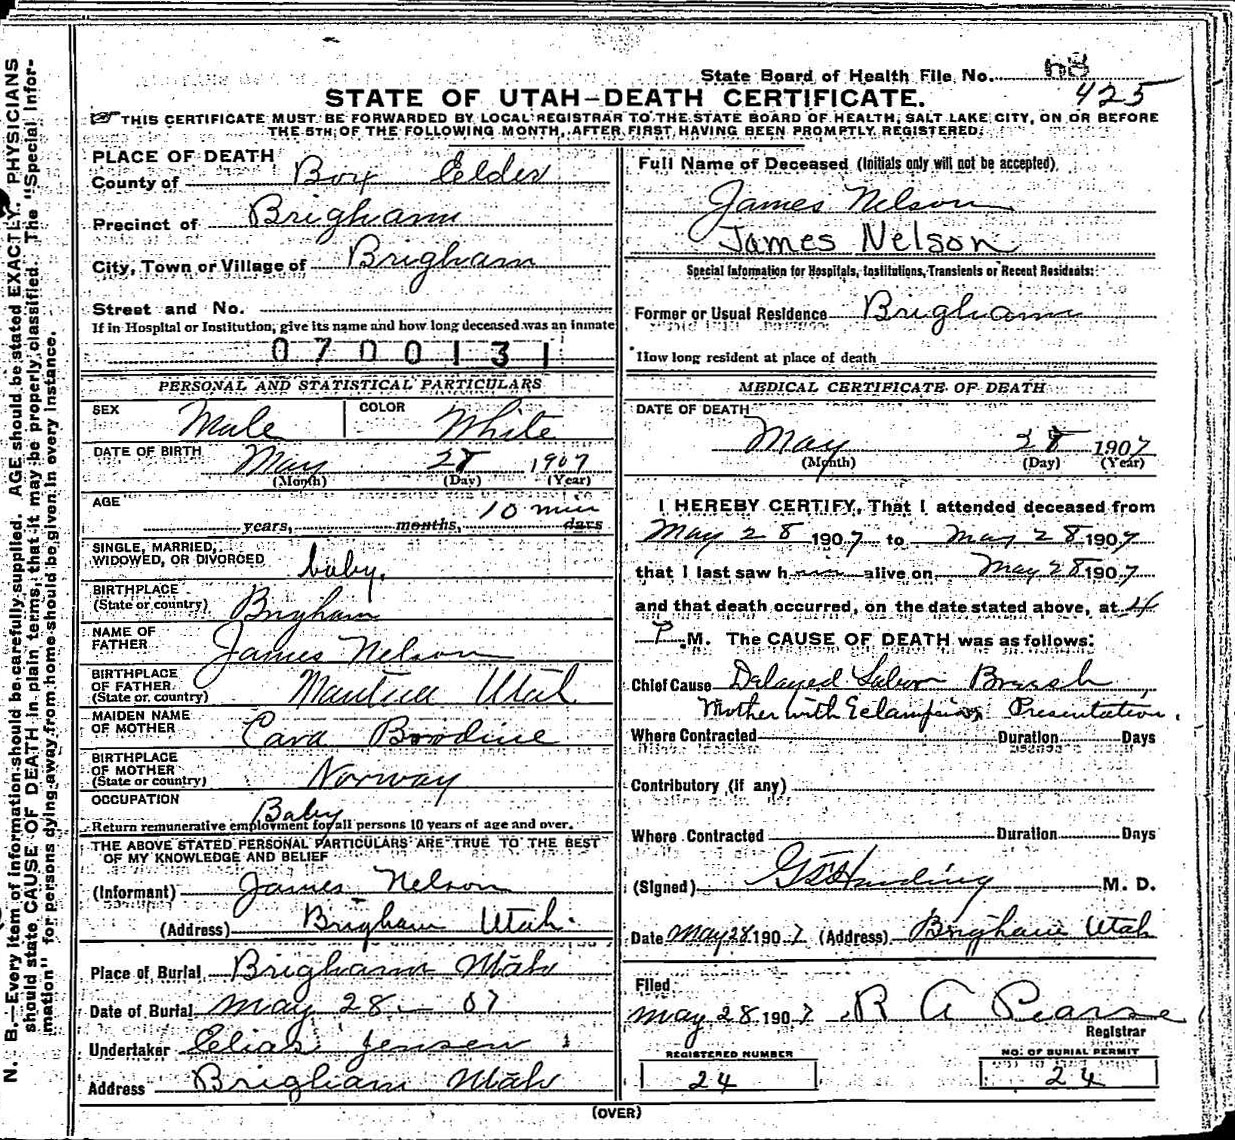 State Board of Health File No. 68
425
STATE OF UTAH—DEATH CERTIFICATE.
THIS CERTIFICATE MUST BE FORWARDED BY LOCAL REGISTRAR TO THE STATE BOARD OF HEALTH, SALT LAKE CITY, ON OR BEFORE
THE 5TH OF THE FOLLOWING MONTH, AFTER FIRST HAVING BEEN PROMPTLY REGISTERED.
PLACE OF DEATH
County of Box Elder
Precinct of Brigham
City, Town or Village of Brigham
Street and No.
If in Hospital or Institution, give its name and how long deceased was an inmate
0700131
PERSONAL AND STATISTICAL PARTICULARS
SEX Male COLOR White
DATE OF BIRTH May 28 1907
(Month) (Day) (Year)
AGE 10 min
years, months, days
SINGLE, MARRIED,
WIDOWED, OR DIVORCED baby.
BIRTHPLACE
(State or country) Brigham
NAME OF
FATHER James Nelson
BIRTHPLACE
OF FATHER
(State or country) Mantua Utah
MAIDEN NAME
OF MOTHER Cara Bodine
BIRTHPLACE
OF MOTHER
(State or country) Norway
OCCUPATION Baby
Return remunerative employment for all persons 10 years of age and over.
THE ABOVE STATED PERSONAL PARTICULARS ARE TRUE TO THE BEST
OF MY KNOWLEDGE AND BELIEF
(Informant) James Nelson
(Address) Brigham Utah.
Place of Burial Brigham Utah
Date of Burial May 28 - 07
Undertaker Elias Jensen
Address Brigham Utah
Full Name of Deceased (Initials only will not be accepted)
James Nelson
James Nelson
Special Information for Hospitals, Institutions, Transients or Recent Residents:
Former or Usual Residence Brigham
How long resident at place of death
MEDICAL CERTIFICATE OF DEATH
DATE OF DEATH
May 28 1907
(Month) (Day) (Year)
I HEREBY CERTIFY, That I attended deceased from
May 28 1907 to May 28 1907
that I last saw h im alive on May 28 1907
and that death occurred, on the date stated above, at 4
P. M. The CAUSE OF DEATH was as follows:
Chief Cause Delayed Labor Breech
Mother with Eclampsia Presentation.
Where Contracted Duration Days
Contributory (if any)
Where Contracted Duration Days
(Signed) Harding M. D.
Date May 28 1907 (Address) Brigham Utah
Filed
May 28 1907 R A Pearse
Registrar
REGISTERED NUMBER
24
NO. OF BURIAL PERMIT
24
(OVER)
N. B.—Every item of information should be carefully supplied. AGE should be stated EXACTLY. PHYSICIANS
should state CAUSE OF DEATH in plain terms, that it may be properly classified. The "Special Infor-
mation" for persons dying away from home should be given in every instance.